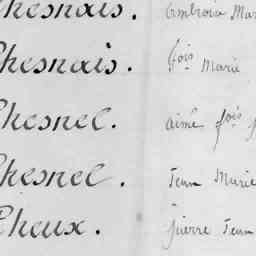 Chesnais. Ambroise Mar
Chesnais. fois Marie
Chesnel. aimé fois
Chesnel. Jean Marie
Cheux. pierre Jean